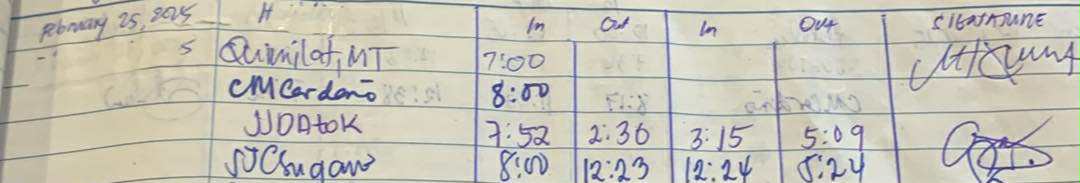 February 25, 2025 H In Out In Out SIGNATURE
- 5 Quimilat, MT 7:00
CMCardaño 8:00
JJDAtok 7:52 2:30 3:15 5:09
8:00 12:23 12:24 5:24